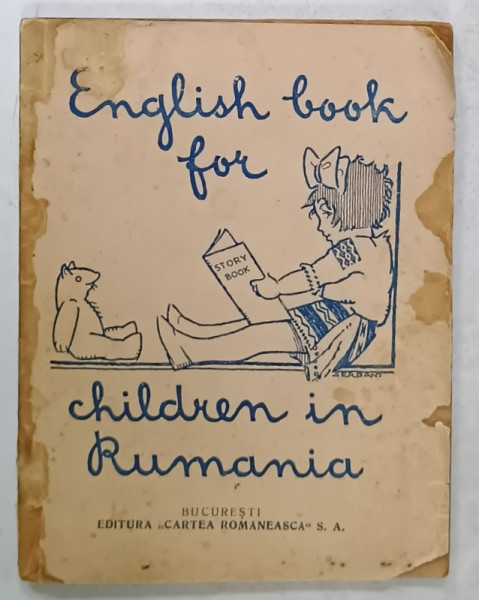 English book
for
STORY
BOOK
children in
Rumania
BUCUREȘTI
EDITURA „CARTEA ROMANEASCA" S. A.